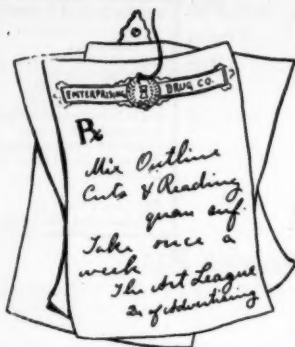 ENTERPRISING DRUG CO.
Rx
Mix Outline
Cuts & Reading
quan suf.
Take once a
week
The Art League
of Advertising